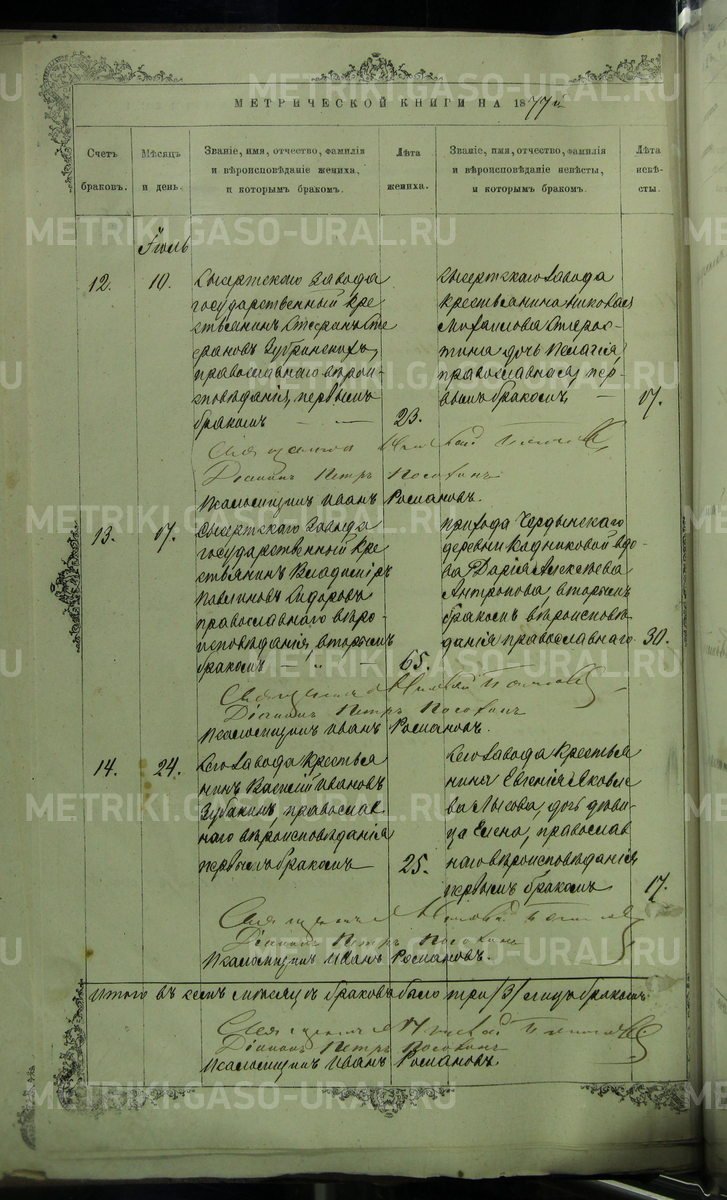 МЕТРИЧЕСКОЙ КНИГИ НА 1877й
Счетъ браковъ.
Мѣсяцъ и день.
Званіе, имя, отчество, фамилія
и вѣроисповѣданіе жениха,
и которымъ бракомъ.
Лѣта жениха.
Званіе, имя, отчество, фамилія
и вѣроисповѣданіе невѣсты,
и которымъ бракомъ.
Лѣта невѣсты.
Іюль
12.
10.
Сысертскаго Завода
государственный кре
стьянинъ Стефанъ Сте
фановъ
православнаго вѣрои-
сповѣданія, первымъ
бракомъ
23.
Сысертскаго Завода
крестьянина Николая
Михаилова Старос-
тина дочь Пелагія,
православная, пер-
вымъ бракомъ,
17.
Священникъ
Діаконъ Петръ
Псаломщикъ Иванъ Романовъ.
13.
17.
Сысертскаго Завода
государственный кре
стьянинъ Владиміръ
Павлиновъ Сидоровъ
православнаго вѣро-
исповѣданія, вторымъ
бракомъ
65.
прихода
деревни Кадниковой вдо-
ва Дарія Алексѣева
Антропова, вторымъ
бракомъ вѣроисповѣ
данія православнаго.
30.
Священникъ
Діаконъ Петръ
Псаломщикъ Иванъ Романовъ.
14.
24.
Сего Завода крестья
нинъ Василій Ивановъ
Зубакинъ, православ
наго вѣроисповѣданія
первымъ бракомъ
25.
Сего Завода крестья
нина Евгенія Яковле
ва Лысова, дочь дѣви
ца Елена, православ
наго вѣроисповѣданія
первымъ бракомъ
17.
Священникъ
Діаконъ Петръ
Псаломщикъ Иванъ Романовъ.
Итого въ семъ мѣсяцѣ браковъ было три /3/
Священникъ
Діаконъ Петръ
Псаломщикъ Иванъ Романовъ.
METRIKI.GASO-URAL.RU